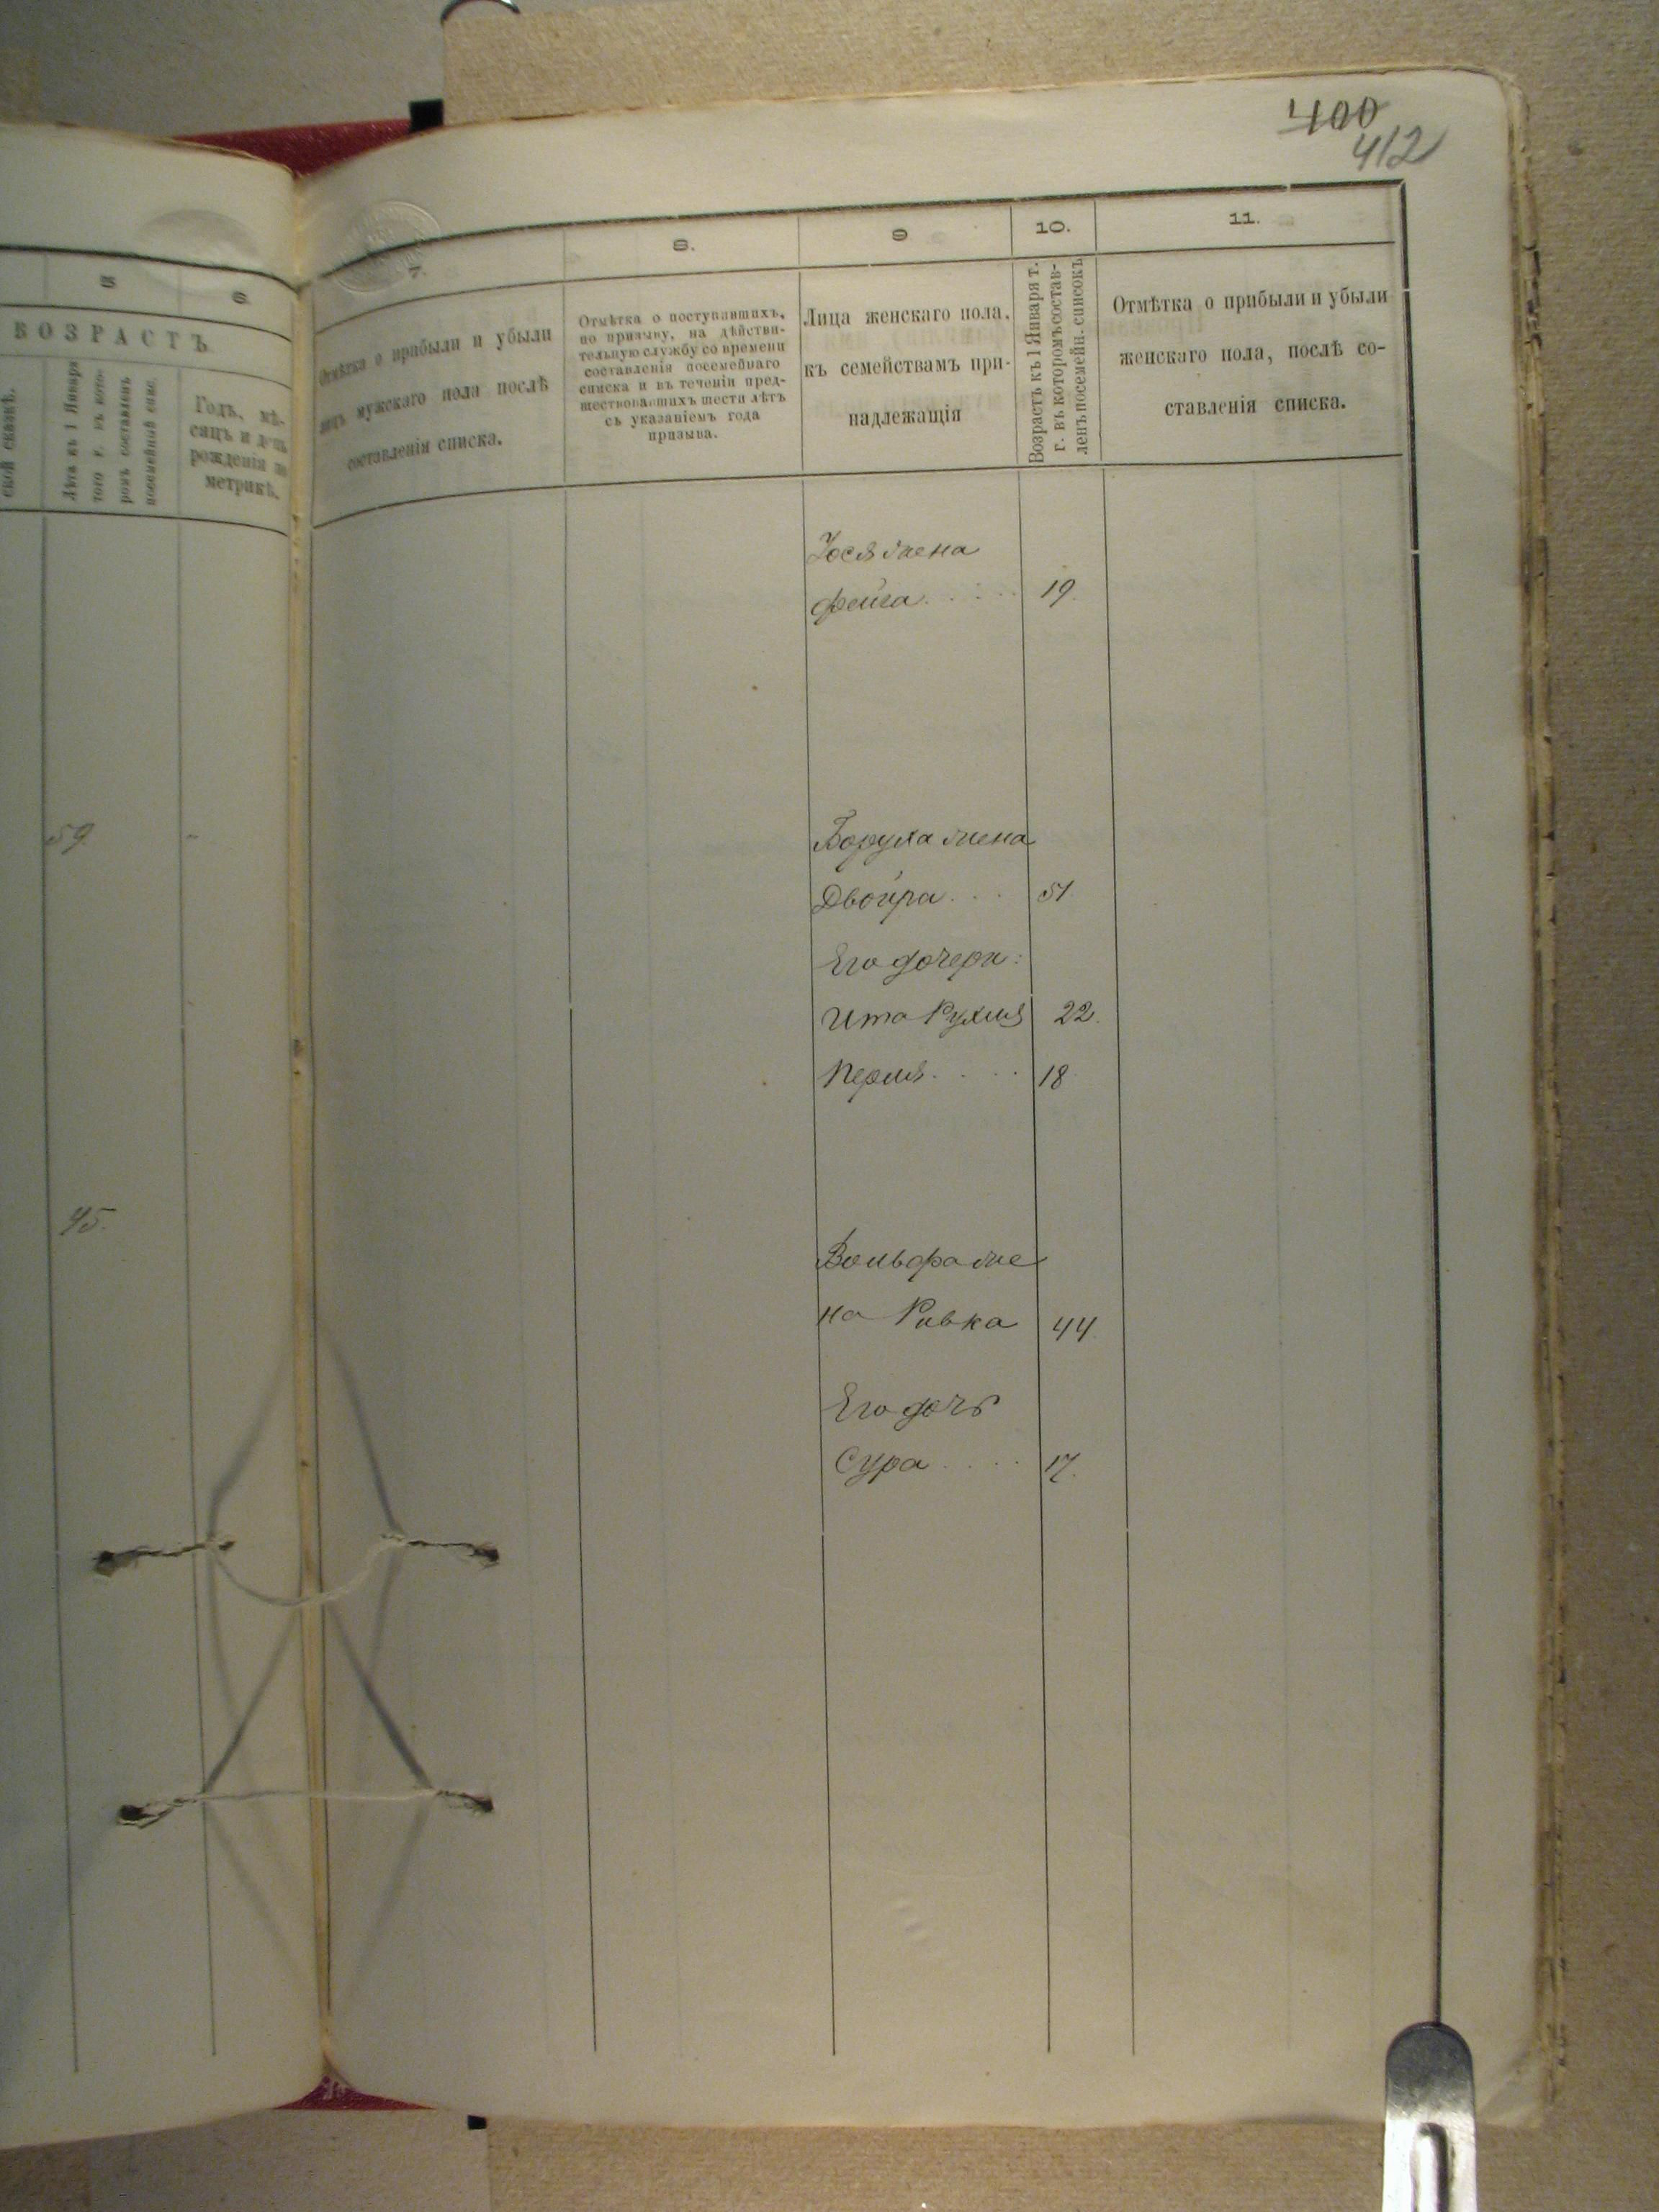 400
412
5
6
ВОЗРАСТЪ
ской сказкѣ.
Лѣта къ 1 Января
того г. въ кото-
ромъ составленъ
посемейный спис.
Годъ, мѣ-
сяцъ и день
рожденія по
метрикѣ.
59
45.
7.
8.
9
10.
11.
Отмѣтка о прибыли и убыли
лицъ мужскаго пола послѣ
составленія списка.
Отмѣтка о поступившихъ,
по призыву, на дѣйстви-
тельную службу со времени
составленія посемейнаго
списка и въ теченіи пред-
шествовавшихъ шести лѣтъ
съ указаніемъ года
призыва.
Лица женскаго пола,
къ семействамъ при-
надлежащія
Возрастъ къ 1 Января т.
г. въ которомъ состав-
ленъ посемейн. списокъ
Отмѣтка о прибыли и убыли
женскаго пола, послѣ со-
ставленія списка.
Іося жена
Фейга . . . . 19.
Боруха жена
Двойра . . . 51.
Его дочери:
Ита Рухля 22.
Перля . . . . 18
Вольфа же
на Ривка 44
Его дочь
Сура . . . . 17.